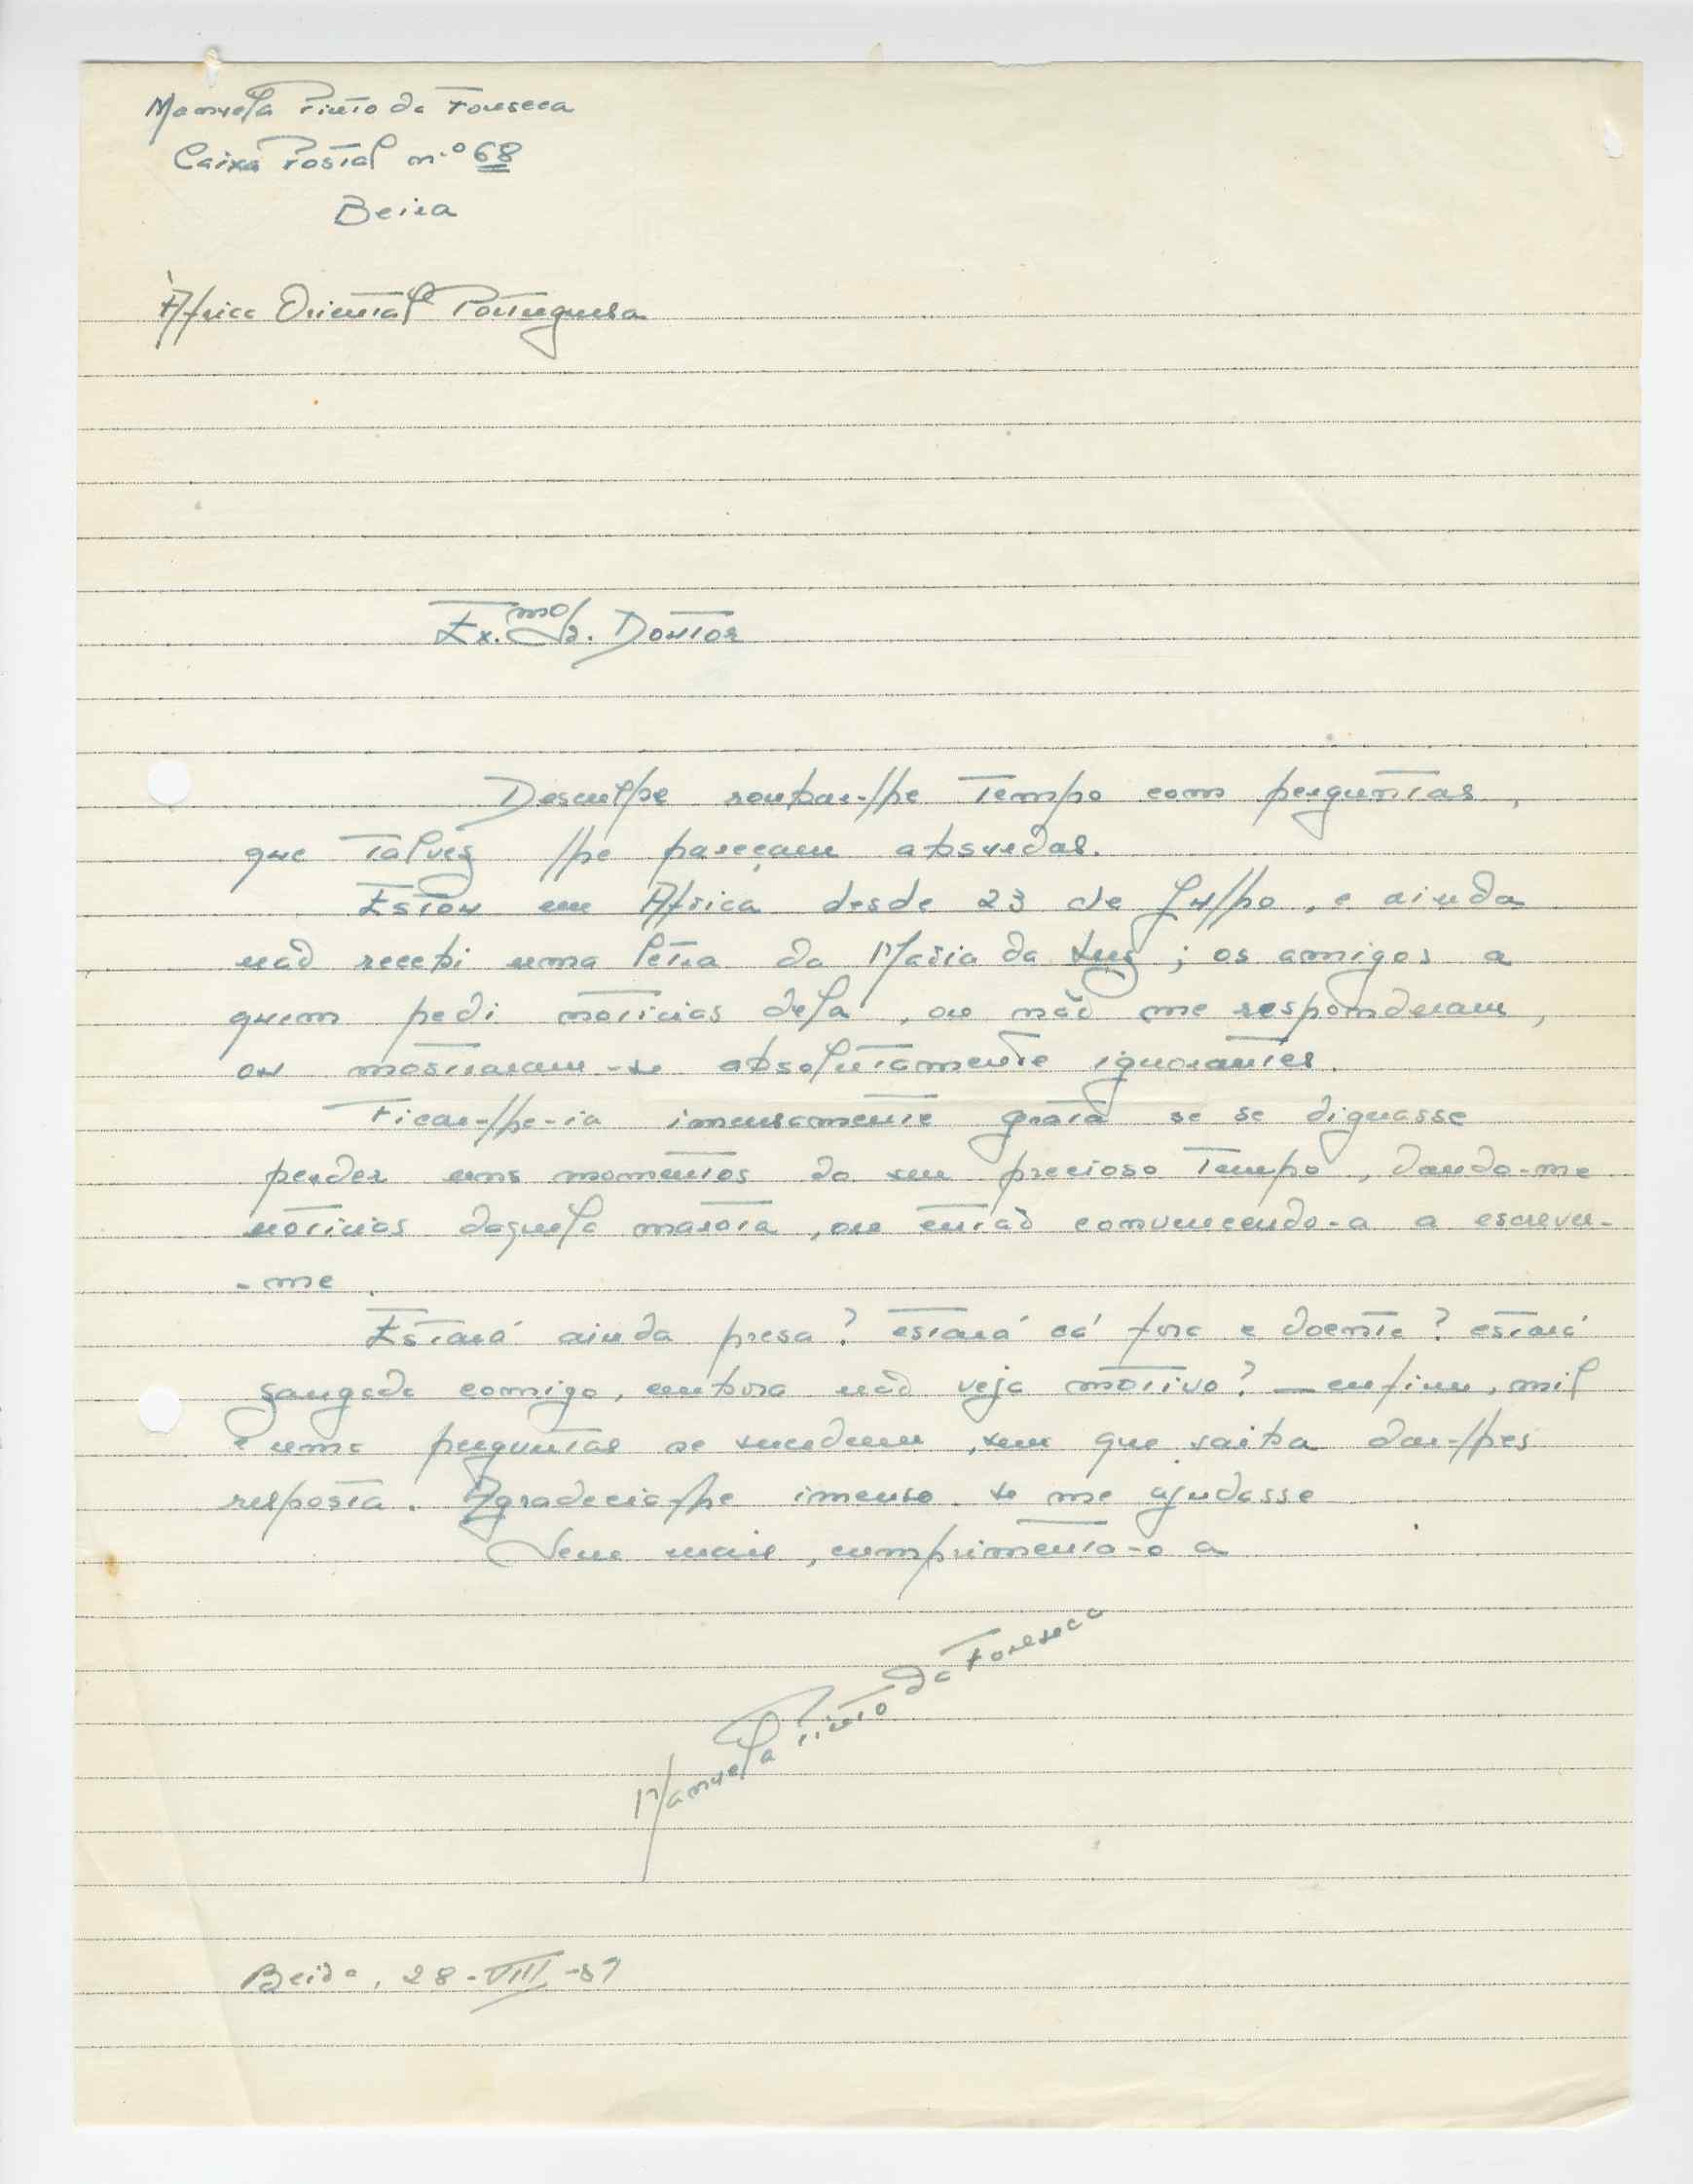 Manuela Pinto da Fonseca
Caixa Postal n.º 68
Beira
África Oriental Portuguesa
Ex.mo Sr. Doutor
Desculpe roubar-lhe tempo com perguntas,
que talvez lhe pareçam absurdas.
Estou em África desde 23 de Julho, e ainda
não recebi uma letra da Maria da Luz; os amigos a
quem pedi notícias dela, ou não me responderam,
ou mostraram-se absolutamente ignorantes.
Ficar-lhe-ia imensamente grata se se dignasse
perder uns momentos do seu precioso tempo, dando-me
notícias daquela marota, ou então convencendo-a a escrever-
-me.
Estará ainda presa? estará cá fora e doente? estará
zangada comigo, embora não veja motivo? — enfim, mil
e uma perguntas se sucedem, sem que saiba dar-lhes
resposta. Agradecia-lhe imenso se me ajudasse
Sem mais, cumprimento-o a
Manuela Pinto da Fonseca
Beira, 28-VIII-57